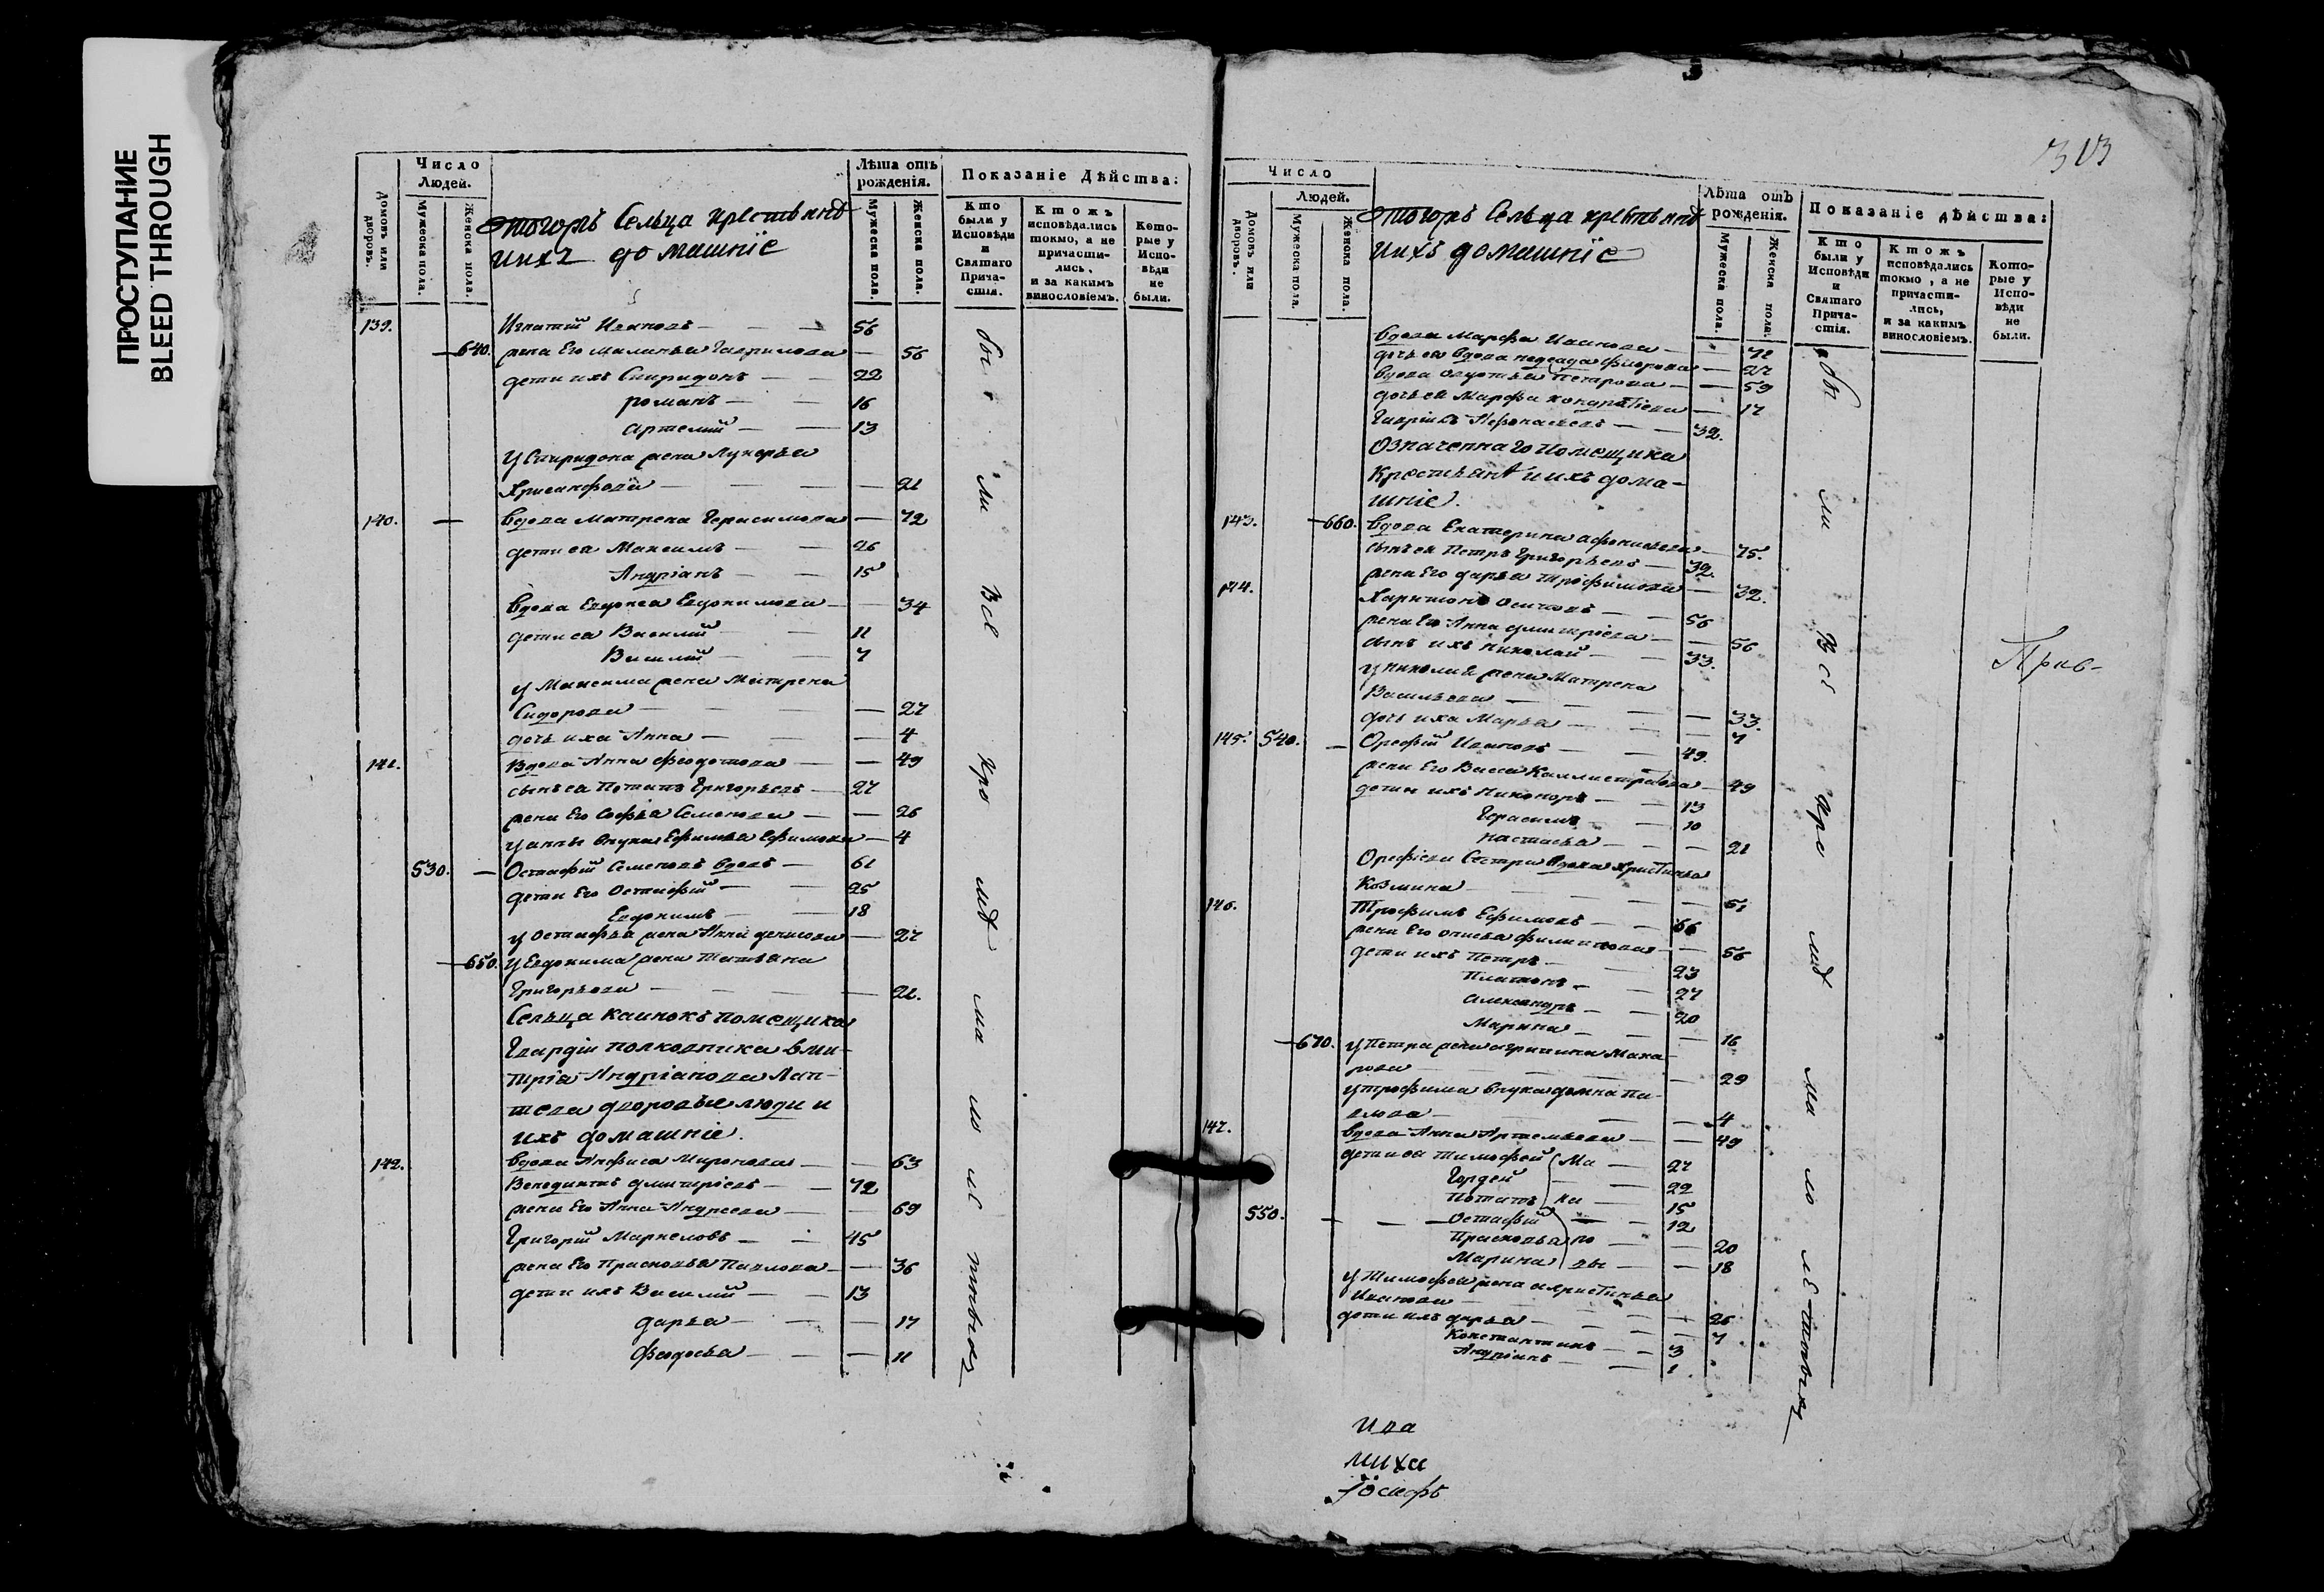 ПРОСТУПАНИЕ
BLEED THROUGH
Число Людей.
Домовъ или дворовъ.
Мужеска пола.
Женска пола.
тогожъ Сельца крестьянѣ
иихъ домашніе
Лѣта отъ рожденія.
Мужеска пола.
Женска пола.
Показаніе Дѣйства:
Кто были у Исповѣди и Святаго Причастія.
Ктожъ исповѣдались токмо, а не причастились, и за какимъ винословіемъ.
Которые у Исповѣди не были.
139. Игнатий Ивановъ — — 56
640. жена Его Маланья Гаврилова — 56
дети ихъ Спиридонъ — — 22
романъ — — 16
Артемий — — 13
у Спиридона жена Лукерья
Хрисанфова — — — 21
140. — вдова Матрена Герасимова — 72
дети ея Максимъ — — 26
Андріанъ — — 15
вдова Евдокея Евдокимова — — 34
дети ея Василий — — 11
Василий — — 7
у Максима жена Матрена
Сидорова — — — 27
дочь ихъ Анна — — — 4
141. вдова Анна Феодотова — — 49
сынъ ея Потапъ Григорьевъ — 27
жена Его Софья Семенова — — 26
у анны внука Ефимья Ефимова — 4
530. — Остафий Семеновъ вдовъ — 61
дети Его Остафий — — 25
Евдокимъ — — 18
у Остафья жена Анна денисова — 27
650. у Евдокима жена Татьяна
Григорьева — — — 21.
Сельца помещика
Гвардіи полковника Дми-
трія Андріанова Лап-
тева дворовые люди и
ихъ домашніе.
142. вдова Анфиса Миронова — — 63
Венедиктъ дмитріевъ — — 72
жена Его Анна Андреева — — 69
Григорий Маркеловъ — — 45
жена Его Прасковья Павлова — — 36
дети ихъ Василий — — 13
дарья — — — 17
Феодосья — — — 11
бы ли Всѣ
303
Число Людей.
Домовъ или дворовъ.
Мужеска пола.
Женска пола.
тогожъ Сельца крестьянѣ
иихъ домашніе
Лѣта отъ рожденія.
Мужеска пола.
Женска пола.
Показаніе дѣйства:
Кто были у Исповѣди и Святаго Причастія.
Ктожъ исповѣдались токмо, а не причастились, и за какимъ винословіемъ.
Которые у Исповѣди не были.
вдова Марфа Иванова — —
дочь ея вдова — 27
вдова Петрова — — 59
дочь ея Марфа кондратіева — 17
Гавріилъ — — 32.
Означеннаго Помещика
Крестьянѣ иихъ дома-
шніе.
143. 660. вдова Екатерина афонасьева — 75.
сынъ ея Петръ Григорьевъ — 32.
жена Его дарья трофимова — 32.
144. Харитонъ Осиповъ — 56
жена Его Анна дмитріева — — 56
сынъ ихъ николай — — 33.
у николая жена Матрена
Васильева — — — — 33.
дочь ихъ Марья — — — 7
145. 540. — Орефий Ивановъ — — 49.
жена Его Васса Каллистратова — 49
дети ихъ Никоноръ — — 13
Герасимъ — — 10
настасья — — — 21
Орефіева Сестра вдова Христинья
Козмина — — — — 51
146. Трофимъ Ефимовъ — — 66
жена Его филипова — — 56
дети ихъ Петръ — — 23
Платонъ — — 27
александръ — — 20
Марина — — — 16
670. у Петра жена агрипина Мака-
рова — — — — 29
у трофима внука домна Па-
влова — — — 4
147. вдова Анна Артемьева — — 49
дети ея тимофей — 27
Гордей — — 22
Потапъ — 15
550. — — — Остафий — — 12
Прасковья — — 20
Марина — — 18
у Тимофея жена христинья
Иванова — — — — 26
дети ихъ дарья — — — 7
Константинъ — — 3
Андріанъ — — 1
бы ли Всѣ
Прав-
Ива
миха
Іосифъ